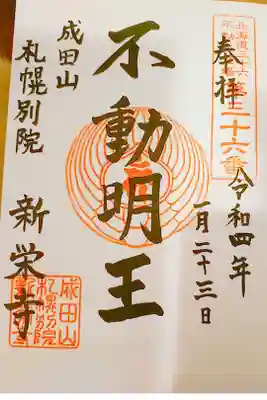 奉拝
北海道三十六
不動尊霊場
第二十六番
令和四年
一月二十三日
不動明王
成田山
札幌別院
新栄寺
成田山
札幌別院
新栄寺